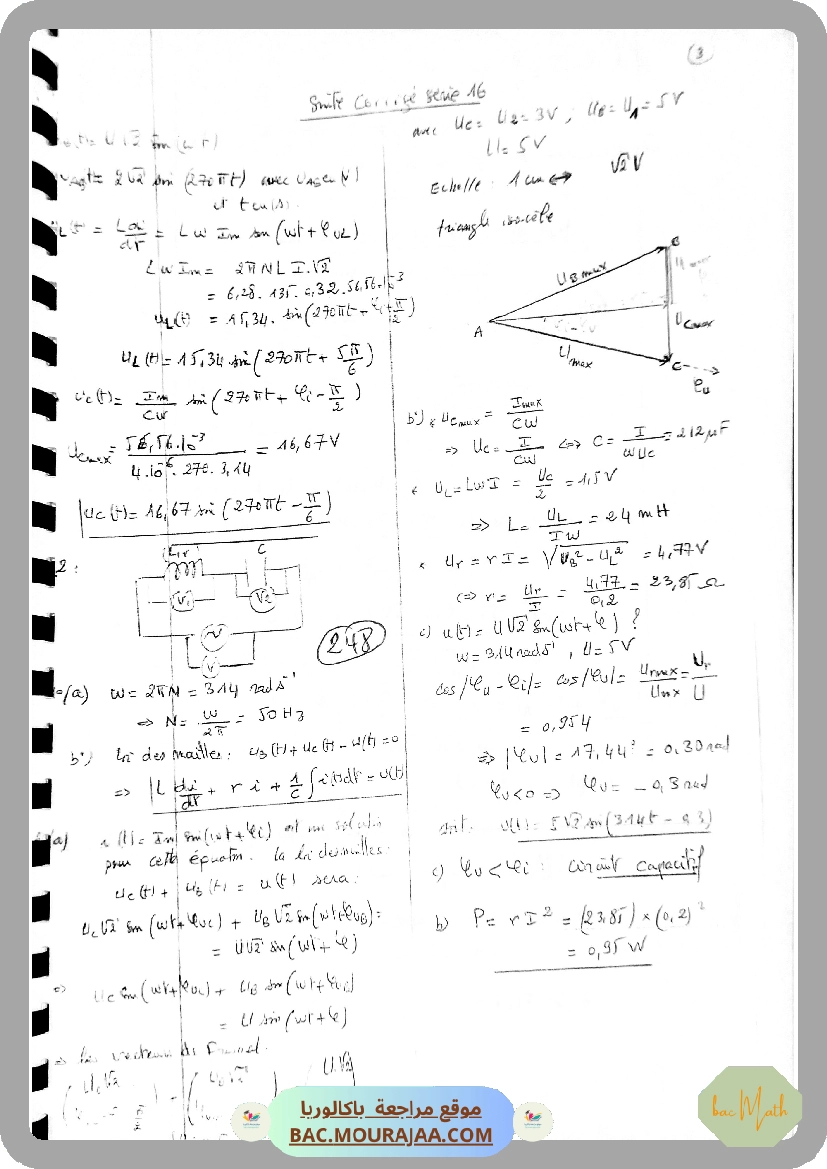 (3
Suite Corrigé série 16
U√2 sin(
2√2 sin (270πt) avec
et t en (s).
L di/dt = Lω Im sin(ωt + φuL)
Lω Im = 2π N L I.√2
= 6,28 . 135 . 0,32 . 56,56.10⁻³
uL(t) = 15,34 . sin(270πt + φi + π/2)
uL(t) = 15,34 sin(270πt + 5π/6)
uc(t) = Im/Cω sin(270πt + φi - π/2)
Ucmax = 56,56.10⁻³ / 4.10⁻⁶ . 270 . 3,14 = 16,67 V
uc(t) = 16,67 sin(270πt - π/6)
2 :
(L,r) C
V1 V2
V
248
a) ω = 2πN = 314 rad s⁻¹
=> N = ω/2π = 50 Hz
b) loi des mailles : uB(t) + uc(t) - u(t) = 0
=> L di/dt + r i + 1/C ∫ i(t)dt = u(t)
a) i(t) = Im sin(ωt + φi) est une solution
pour cette équation. la loi des mailles :
uc(t) + uB(t) = u(t) sera :
Uc√2 sin(ωt + φuc) + UB√2 sin(ωt + φuB) =
= U√2 sin(ωt + φ)
=> Uc sin(ωt + φuc) + UB sin(ωt +
= U sin(ωt + φ)
=> les vecteurs de Fresnel.
Uc√2
U√2
avec Uc = U2 = 3V ; UB = U1 = 5V
U = 5V
Echelle : 1 cm <-> √2 V
triangle isocèle
B
UBmax
A
Ucmax
Umax
C
φu
b) * Ucmax = Imax/Cω
=> Uc = I/Cω <=> C = I/ωUc = 212 µF
* UL = LωI = Uc/2 = 1,5 V
=> L = UL/Iω = 24 mH
* Ur = rI = √(UB² - UL²) = 4,77 V
<=> r = Ur/I = 4,77/0,2 = 23,85 Ω
c) u(t) = U√2 sin(ωt + φ) ?
ω = 314 rad s⁻¹, U = 5V
cos|φu - φi| = cos|φu| = Urmax/Umax = Ur/U
= 0,954
=> |φu| = 17,44° = 0,30 rad
φu < 0 => φu = - 0,3 rad
soit. u(t) = 5√2 sin(314t - 0,3)
c) φu < φi : circuit capacitif
b) P = r I² = (23,85) × (0,2)²
= 0,95 W
موقع مراجعة باكالوريا
BAC.MOURAJAA.COM
bac Math